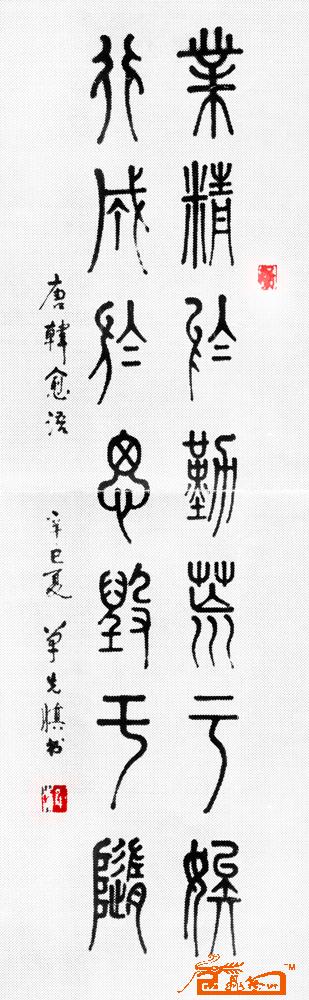 業精於勤荒于嬉
行成於思毀于隨
唐韓愈语 辛巳夏 先 书